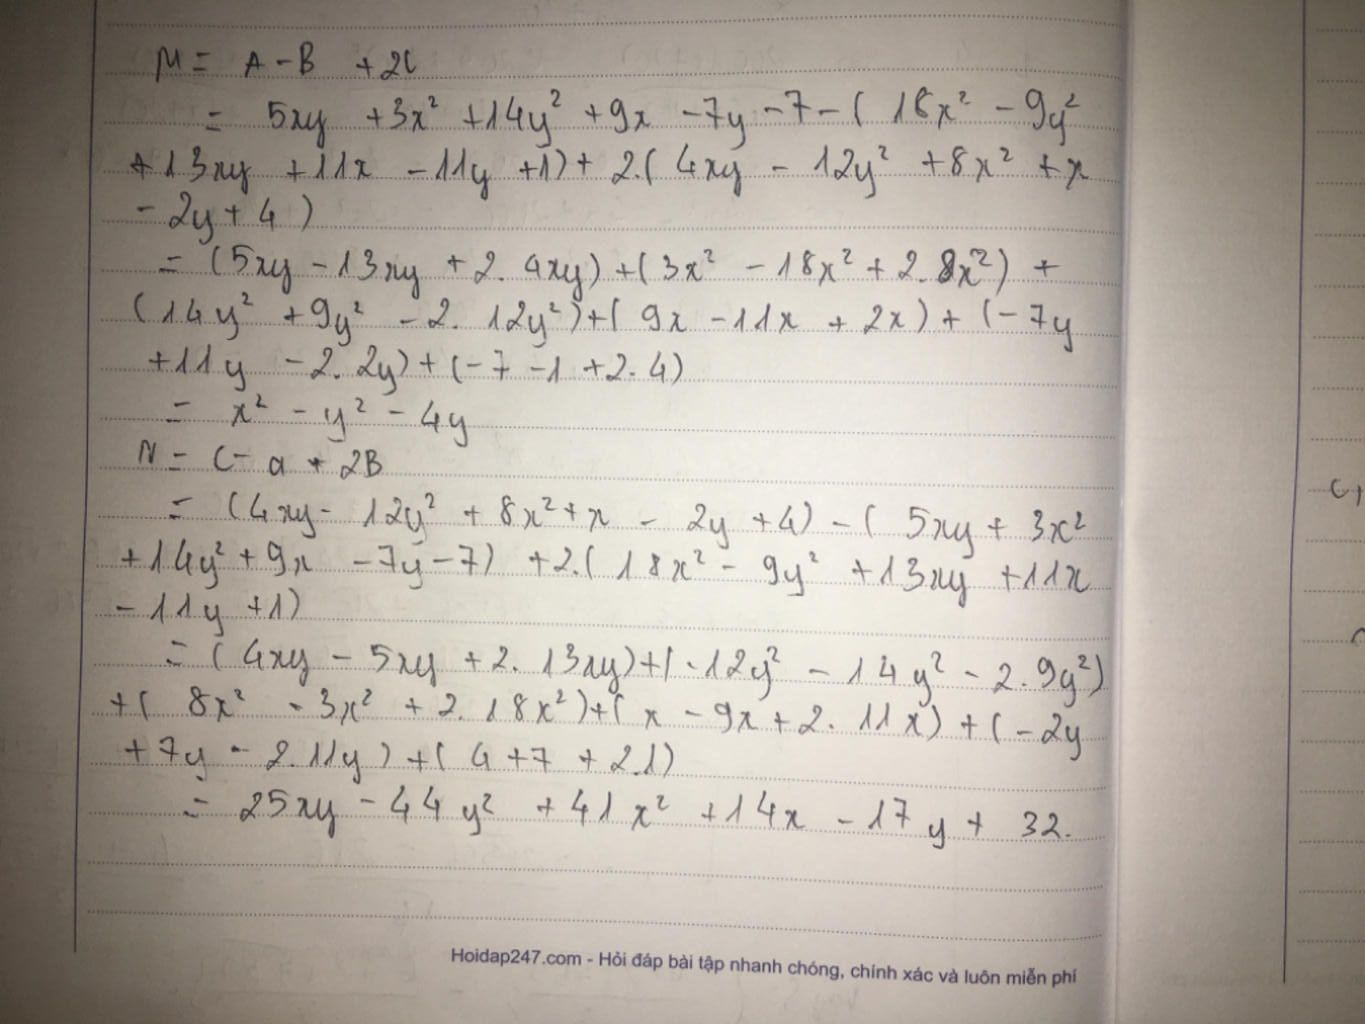 M = A - B + 2C
= 5xy + 3x² + 14y² + 9x - 7y - 7 - ( 18x² - 9y²
+ 13xy + 11x - 11y + 1) + 2.( 4xy - 12y² + 8x² + x
- 2y + 4 )
= (5xy - 13xy + 2. 4xy) + ( 3x² - 18x² + 2. 8x²) +
(14y² + 9y² - 2. 12y²) + ( 9x - 11x + 2x) + (- 7y
+ 11y - 2. 2y) + (- 7 - 1 + 2. 4)
= x² - y² - 4y
N = C - a + 2B
= (4xy - 12y² + 8x² + x - 2y + 4) - ( 5xy + 3x²
+ 14y² + 9x - 7y - 7) + 2.( 18x² - 9y² + 13xy + 11x
- 11y + 1)
= ( 4xy - 5xy + 2. 13xy) + ( - 12y² - 14y² - 2. 9y²)
+ ( 8x² - 3x² + 2. 18x²) + ( x - 9x + 2. 11x) + (- 2y
+ 7y - 2.11y ) + ( 4 + 7 + 2.1)
= 25xy - 44y² + 41x² + 14x - 17y + 32.
C,
Hoidap247.com - Hỏi đáp bài tập nhanh chóng, chính xác và luôn miễn phí